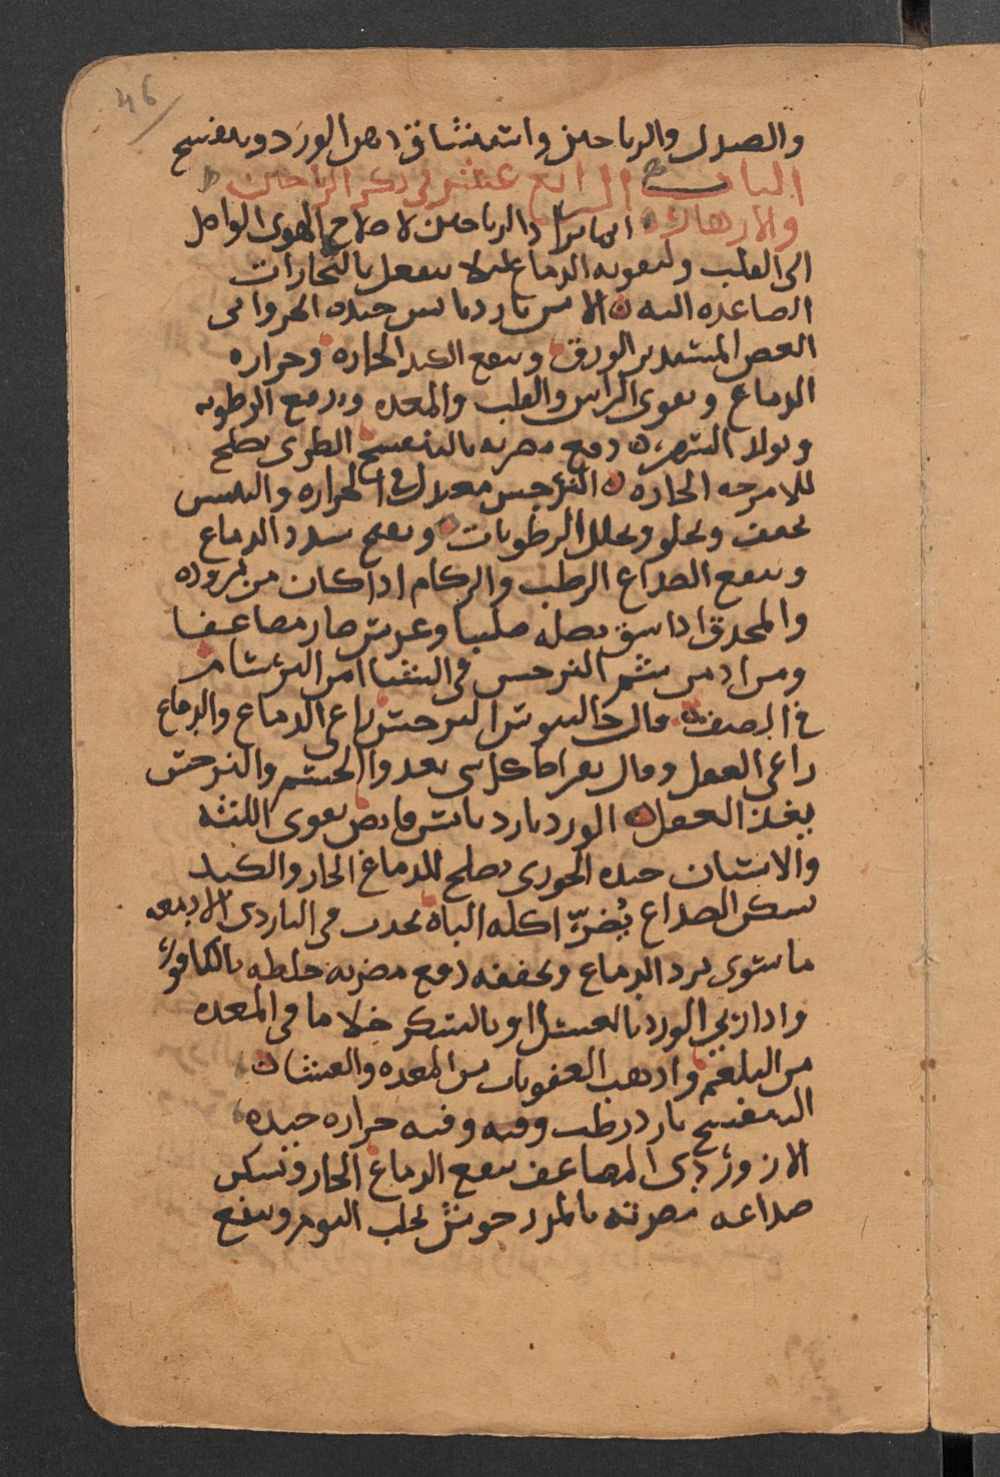 46
والصندل والرياحين واستنشاق دهن الورد وبنفسج
الباب الرابع عشر في ذكر الرياحين
والازهار انما تراد الرياحين لاصلاح الهوى الواصل
الى القلب ولتقويه الدماغ ليلا ينفعل بالبخارات
الصاعده اليه الاس بارد يابس جيده الخسرواني
الغض المستدير الورق وينفع الكبد الحاره وحراره
الدماغ ويقوى الراس والقلب والمعده ويدفع الرطوبه
ويولد السهر دفع مضرته بالبنفسج الطرى يصلح
للامزجه الحاره النرجس معتدل في الحراره واليبس
يجفف ويجلو ويحلل الرطوبات ويفتح سدد الدماغ
وينفع الصداع الرطب والزكام اذا كان من بروده
والمحدق اذا شق بصله صليبا وغرس صار مضاعفا
ومن ادمن شم النرجس في الشتا امن البرسام
في الصيف قال جالينوس النرجس راعى الدماغ والدماغ
راعى العقل وقال بقراط كل شى يغدوا الجسم والنرجس
يغذ العقل الورد بارد يابس قابض يقوى اللثه
والاسنان جيده الجورى يصلح للدماغ الحار والكبد
يسكن الصداع يُضرّ اكله الباه يحدث في الباردى الادمغه
برد الدماغ وتجففه دفع مضرته خلطه بالكافور
واذا ربى الورد بالعسل او بالسكر جلا ما في المعده
من البلغم واذهب العفونات من المعده والعشان
البنفسج بارد رطب وفيه حراره جيده
الازوردى المضاعف ينفع الدماغ الحار ويسكن
صداعه مضرته بالمردجوش يجلب النوم وينفع